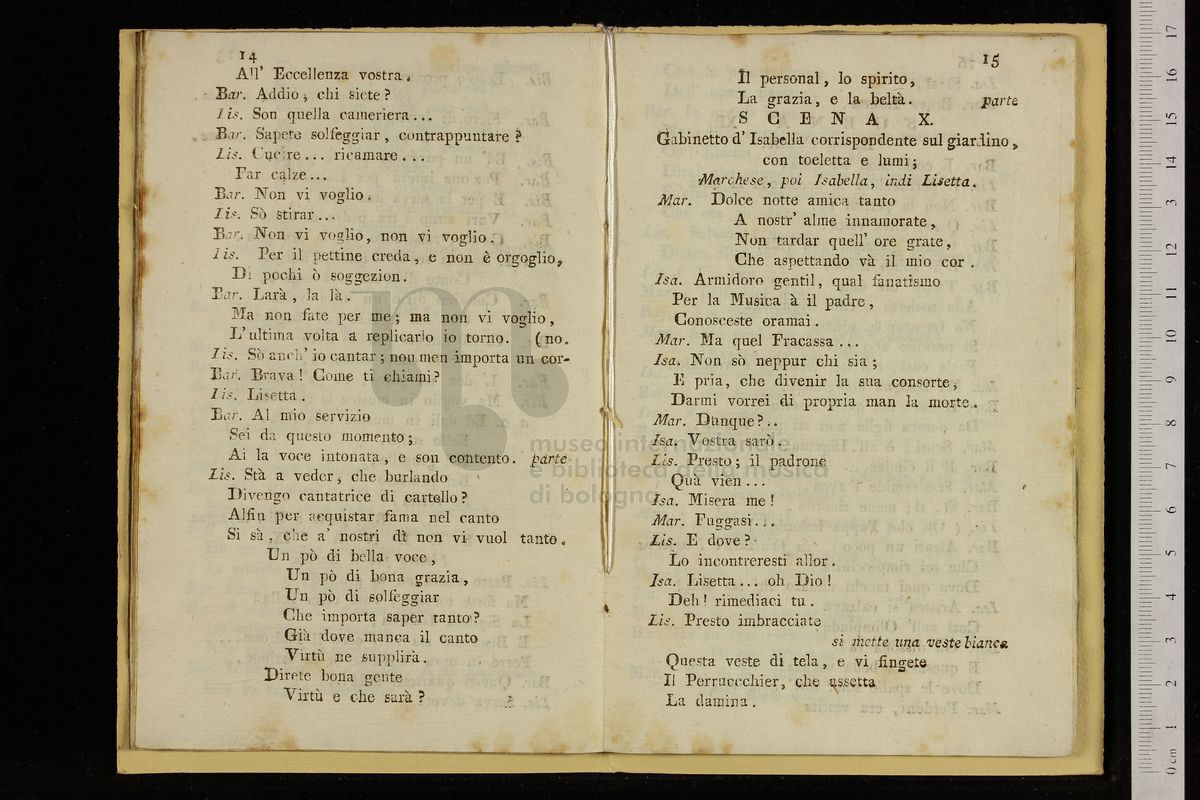 14
All' Eccellenza vostra.
Bar. Addio, chi siete?
Lis. Son quella cameriera...
Bar. Sapete solfeggiar, contrappuntare?
Lis. Cucire... ricamare...
Far calze...
Bar. Non vi voglio.
Lis. Sò stirar...
Bar. Non vi voglio, non vi voglio.
Lis. Per il pettine creda, e non è orgoglio,
Di pochi ò soggezion.
Bar. Larà, la là.
Ma non fate per me; ma non vi voglio,
L'ultima volta a replicarlo io torno. (no.
Lis. Sò anch' io cantar; non men importa un cor-
Bar. Brava! Come ti chiami?
Lis. Lisetta.
Bar. Al mio servizio
Sei da questo momento;
Ai la voce intonata, e son contento. parte
Lis. Stà a veder, che burlando
Divengo cantatrice di cartello?
Alfin per acquistar fama nel canto
Si sà, che a' nostri dì non vi vuol tanto.
Un pò di bella voce,
Un pò di bona grazia,
Un pò di solfeggiar
Che importa saper tanto?
Già dove manca il canto
Virtù ne supplirà.
Direte bona gente
Virtù e che sarà?
15
Il personal, lo spirito,
La grazia, e la beltà. parte
SCENA X.
Gabinetto d' Isabella corrispondente sul giardino,
con toeletta e lumi;
Marchese, poi Isabella, indi Lisetta.
Mar. Dolce notte amica tanto
A nostr' alme innamorate,
Non tardar quell' ore grate,
Che aspettando và il mio cor.
Isa. Armidoro gentil, qual fanatismo
Per la Musica à il padre,
Conosceste oramai.
Mar. Ma quel Fracassa...
Isa. Non sò neppur chi sia;
E pria, che divenir la sua consorte,
Darmi vorrei di propria man la morte.
Mar. Dunque?..
Isa. Vostra sarò.
Lis. Presto; il padrone
Quà vien...
Isa. Misera me!
Mar. Fuggasi...
Lis. E dove?
Lo incontreresti allor.
Isa. Lisetta... oh Dio!
Deh! rimediaci tu.
Lis. Presto imbracciate
si mette una veste bianca
Questa veste di tela, e vi fingete
Il Perruccchier, che assetta
La damina.
museo internazionale
e biblioteca della musica
di bologna
0 cm 1 2 3 4 5 6 7 8 9 10 11 12 13 14 15 16 17